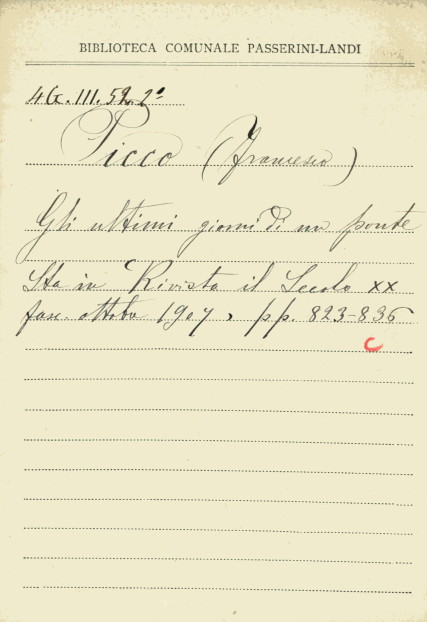 BIBLIOTECA COMUNALE PASSERINI-LANDI
4G.III.52.2º
Picco (Francesco)
Gli ultimi giorni di un ponte
Sta in Rivista il Secolo XX
fasc. ottobre 1907, pp. 823-836
C